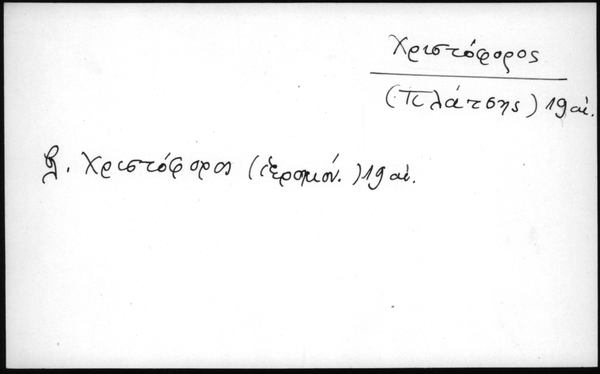 Χριστόφορος
(Πλάτσης) 19 αἰ.
β. Χριστόφορος (ἱερομόν.) 19 αἰ.